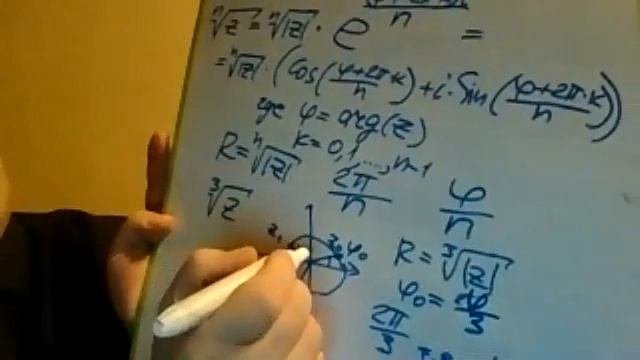 ⁿ√z = ⁿ√|z| · e n =
= ⁿ√|z| · (Cos(φ+2π·k/n) + i·Sin(φ+2π·k/n))
где φ = arg(z)
R = ⁿ√|z| k = 0,1,..., n-1
³√z 2π/n φ/n
z₀ φ₀ R = ³√|z|
φ₀ = φ/3
2π/3